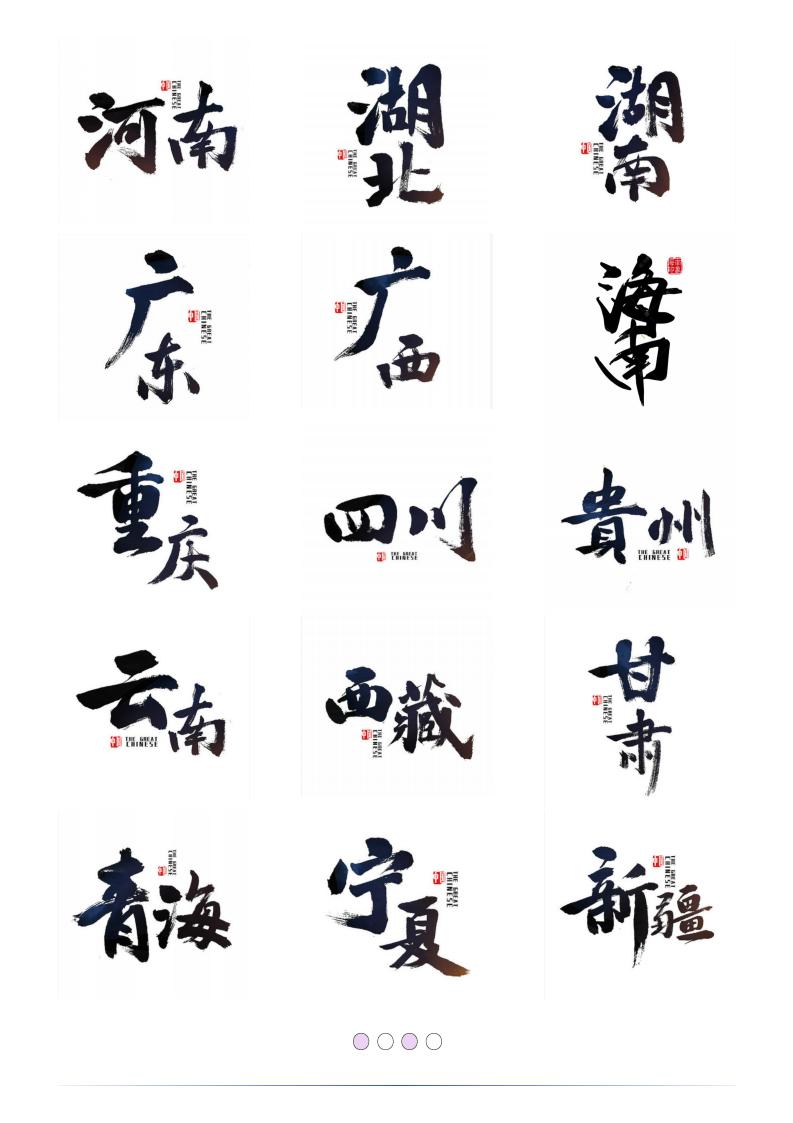 河南
THE GREAT
CHINESE
中国
湖北
THE GREAT
CHINESE
中国
湖南
THE GREAT
CHINESE
中国
广东
THE GREAT
CHINESE
中国
广西
THE GREAT
CHINESE
中国
海南
重庆
THE GREAT
CHINESE
中国
四川
中国
THE GREAT
CHINESE
貴州
THE GREAT
CHINESE
中国
云南
中国
THE GREAT
CHINESE
西藏
THE GREAT
CHINESE
中国
甘肃
THE GREAT
CHINESE
中国
青海
THE GREAT
CHINESE
中国
宁夏
THE GREAT
CHINESE
中国
新疆
THE GREAT
CHINESE
中国